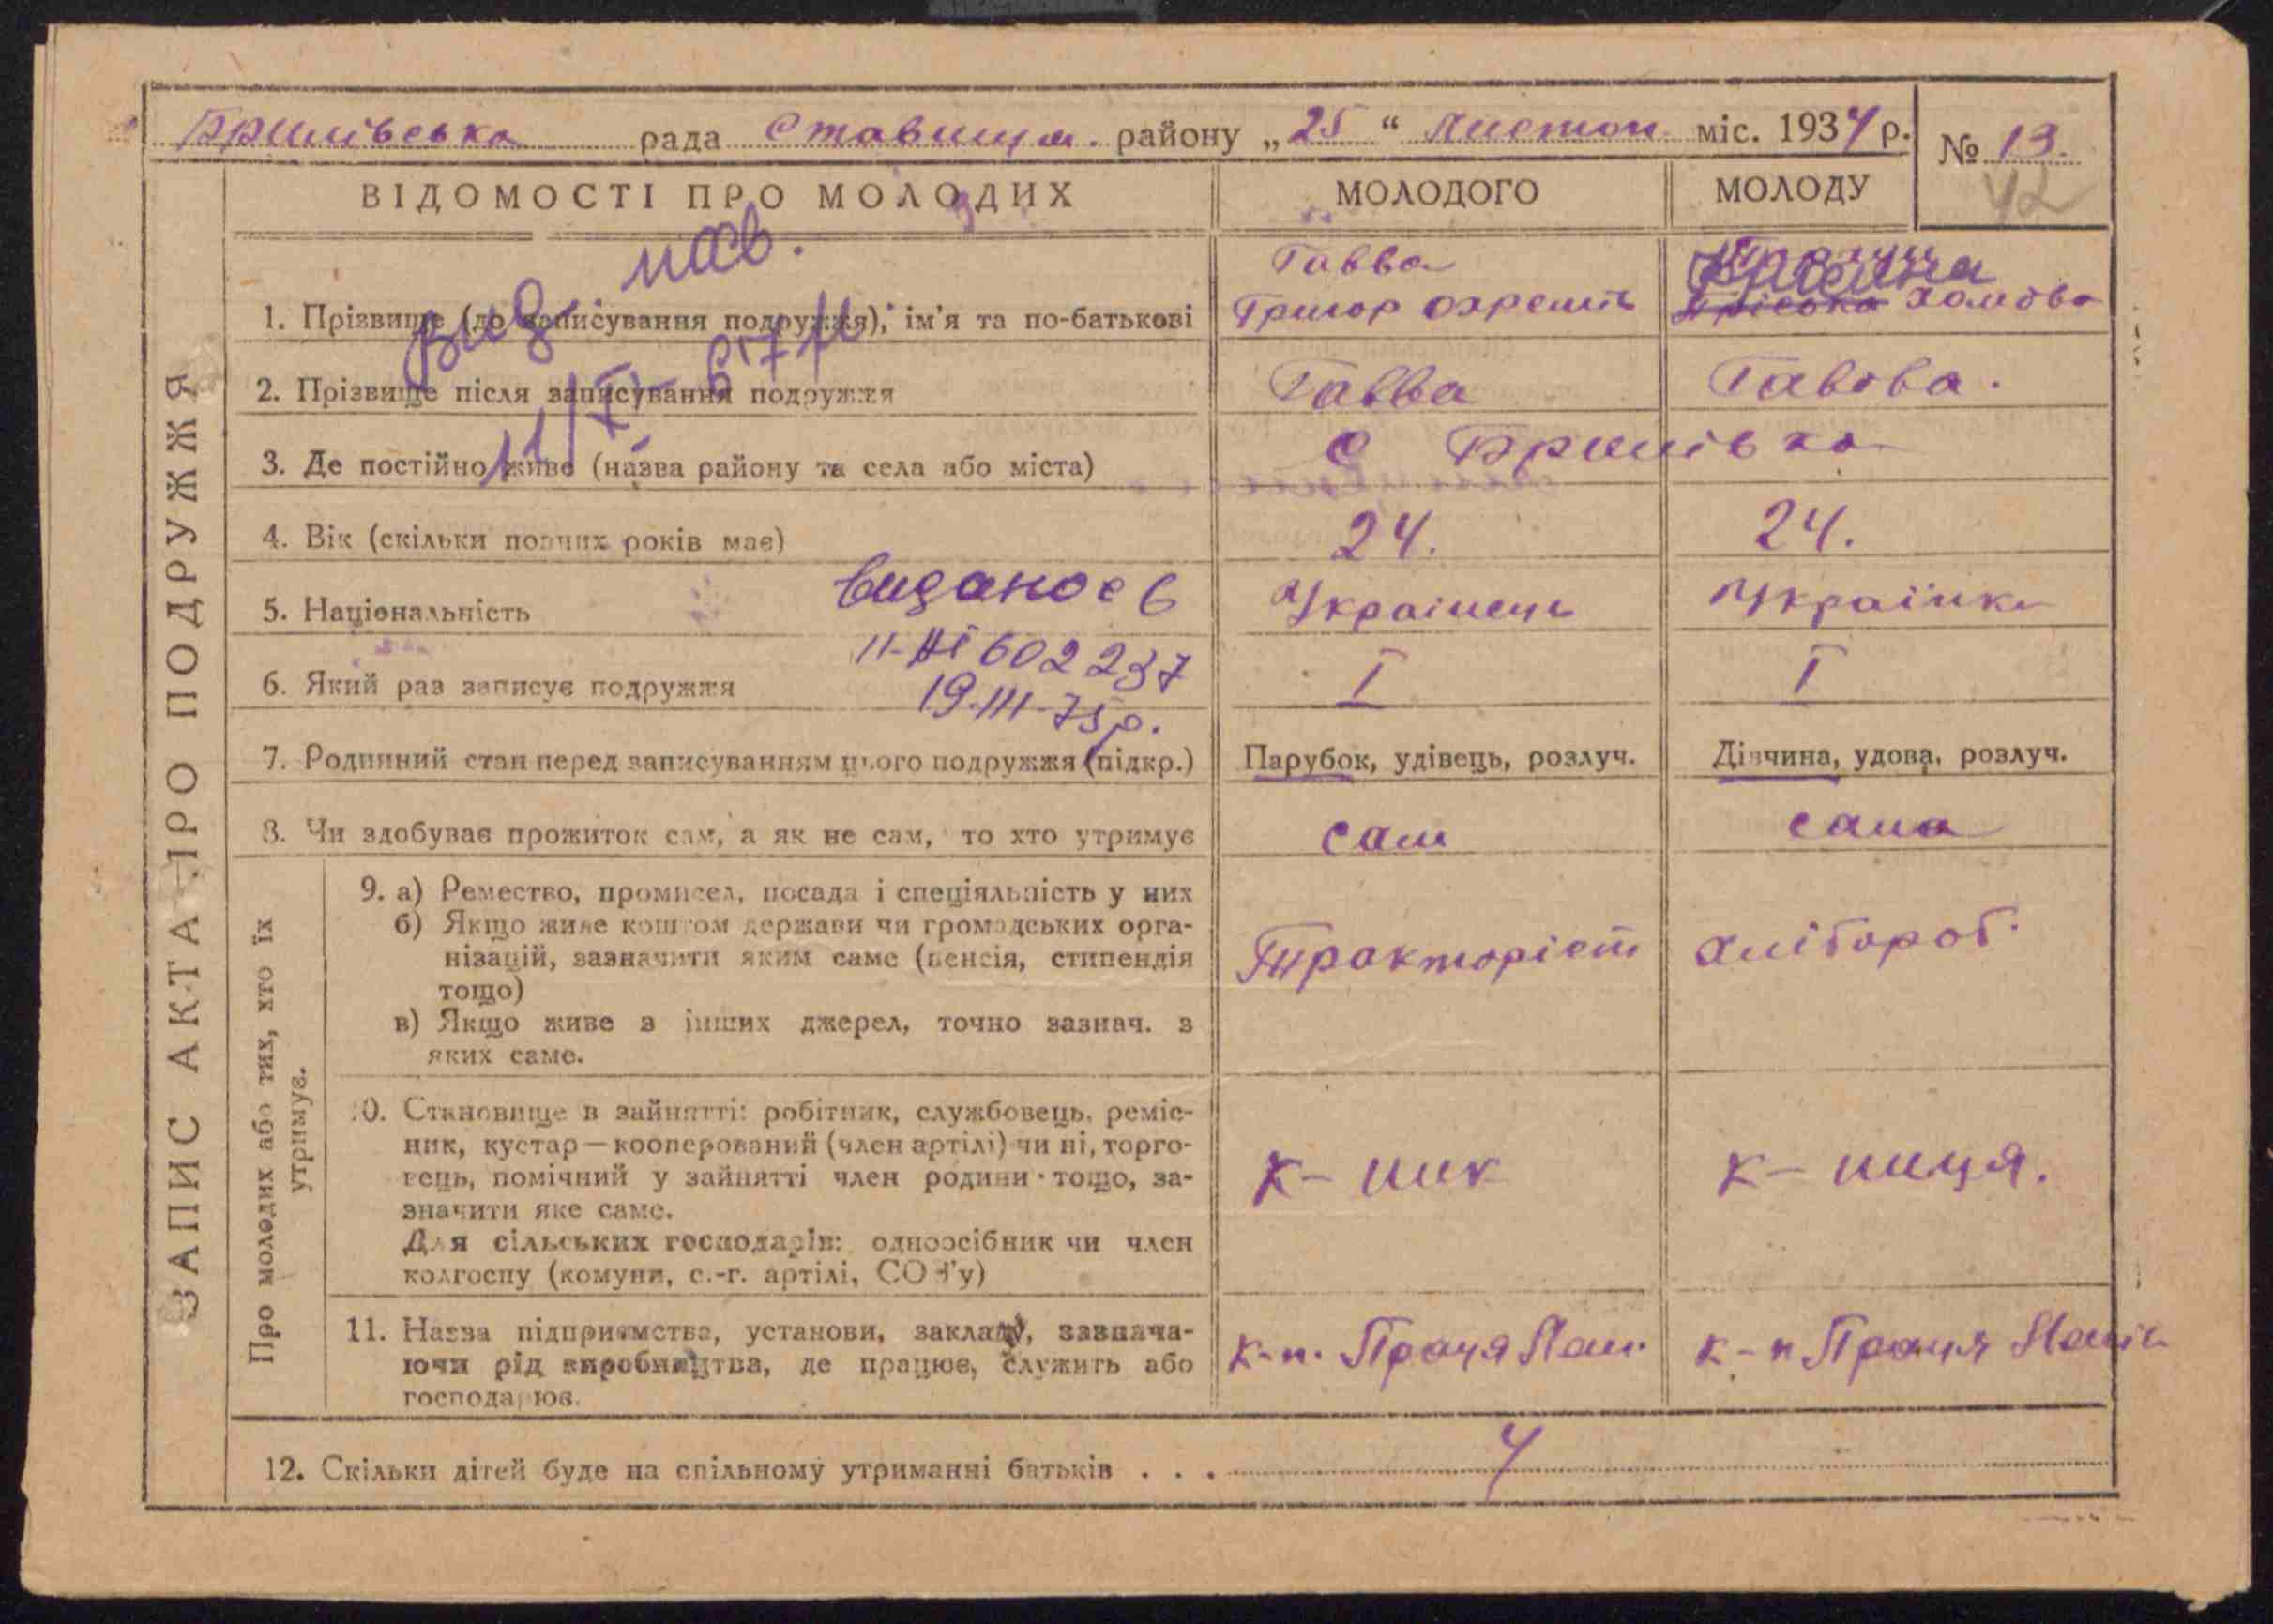 Брилівська рада Ставищан. району „25“ Листоп. міс. 1934 р.
№ 13.
42
ВІДОМОСТІ ПРО МОЛОДИХ
МОЛОДОГО
МОЛОДУ
ЗАПИС АКТА ПРО ПОДРУЖЖЯ
1. Прізвище (до записування подружжя), ім’я та по-батькові
Гавва
Григор Охремів
Хомова
2. Прізвище після записування подружжя
Гавва
Гавова.
3. Де постійно живе (назва району та села або міста)
с Брилівка
4. Вік (скільки повних років має)
24.
24.
5. Національність
Українець
Українка
видано св
602237
19.III-75р.
6. Який раз записує подружжя
I
I
7. Родинний стан перед записуванням цього подружжя (підкр.)
Парубок, удівець, розлуч.
Дівчина, удова, розлуч.
8. Чи здобуває прожиток сам, а як не сам, то хто утримує
сам
сама
Про молодих або тих, хто їх утримує.
9. а) Ремество, промисел, посада і спеціяльність у них
б) Якщо живе коштом держави чи громадських орга-
нізацій, зазначити яким саме (пенсія, стипендія
тощо)
в) Якщо живе з інших джерел, точно зазнач. з
яких саме.
Тракторіст
хлібороб.
10. Становище в зайнятті: робітник, службовець, реміс-
ник, кустар—кооперований (член артілі) чи ні, торго-
вець, помічний у зайнятті член родини тощо, за-
значити яке саме.
Для сільських господарів: одноосібник чи член
колгоспу (комуни, с.-г. артілі, СОЗ’у)
к- ник
к- ниця.
11. Назва підприємства, установи, закладу, зазнача-
ючи рід виробництва, де працює, служить або
господарює.
к-п. Праця
к-п Праця
12. Скільки дітей буде на спільному утриманні батьків . . .